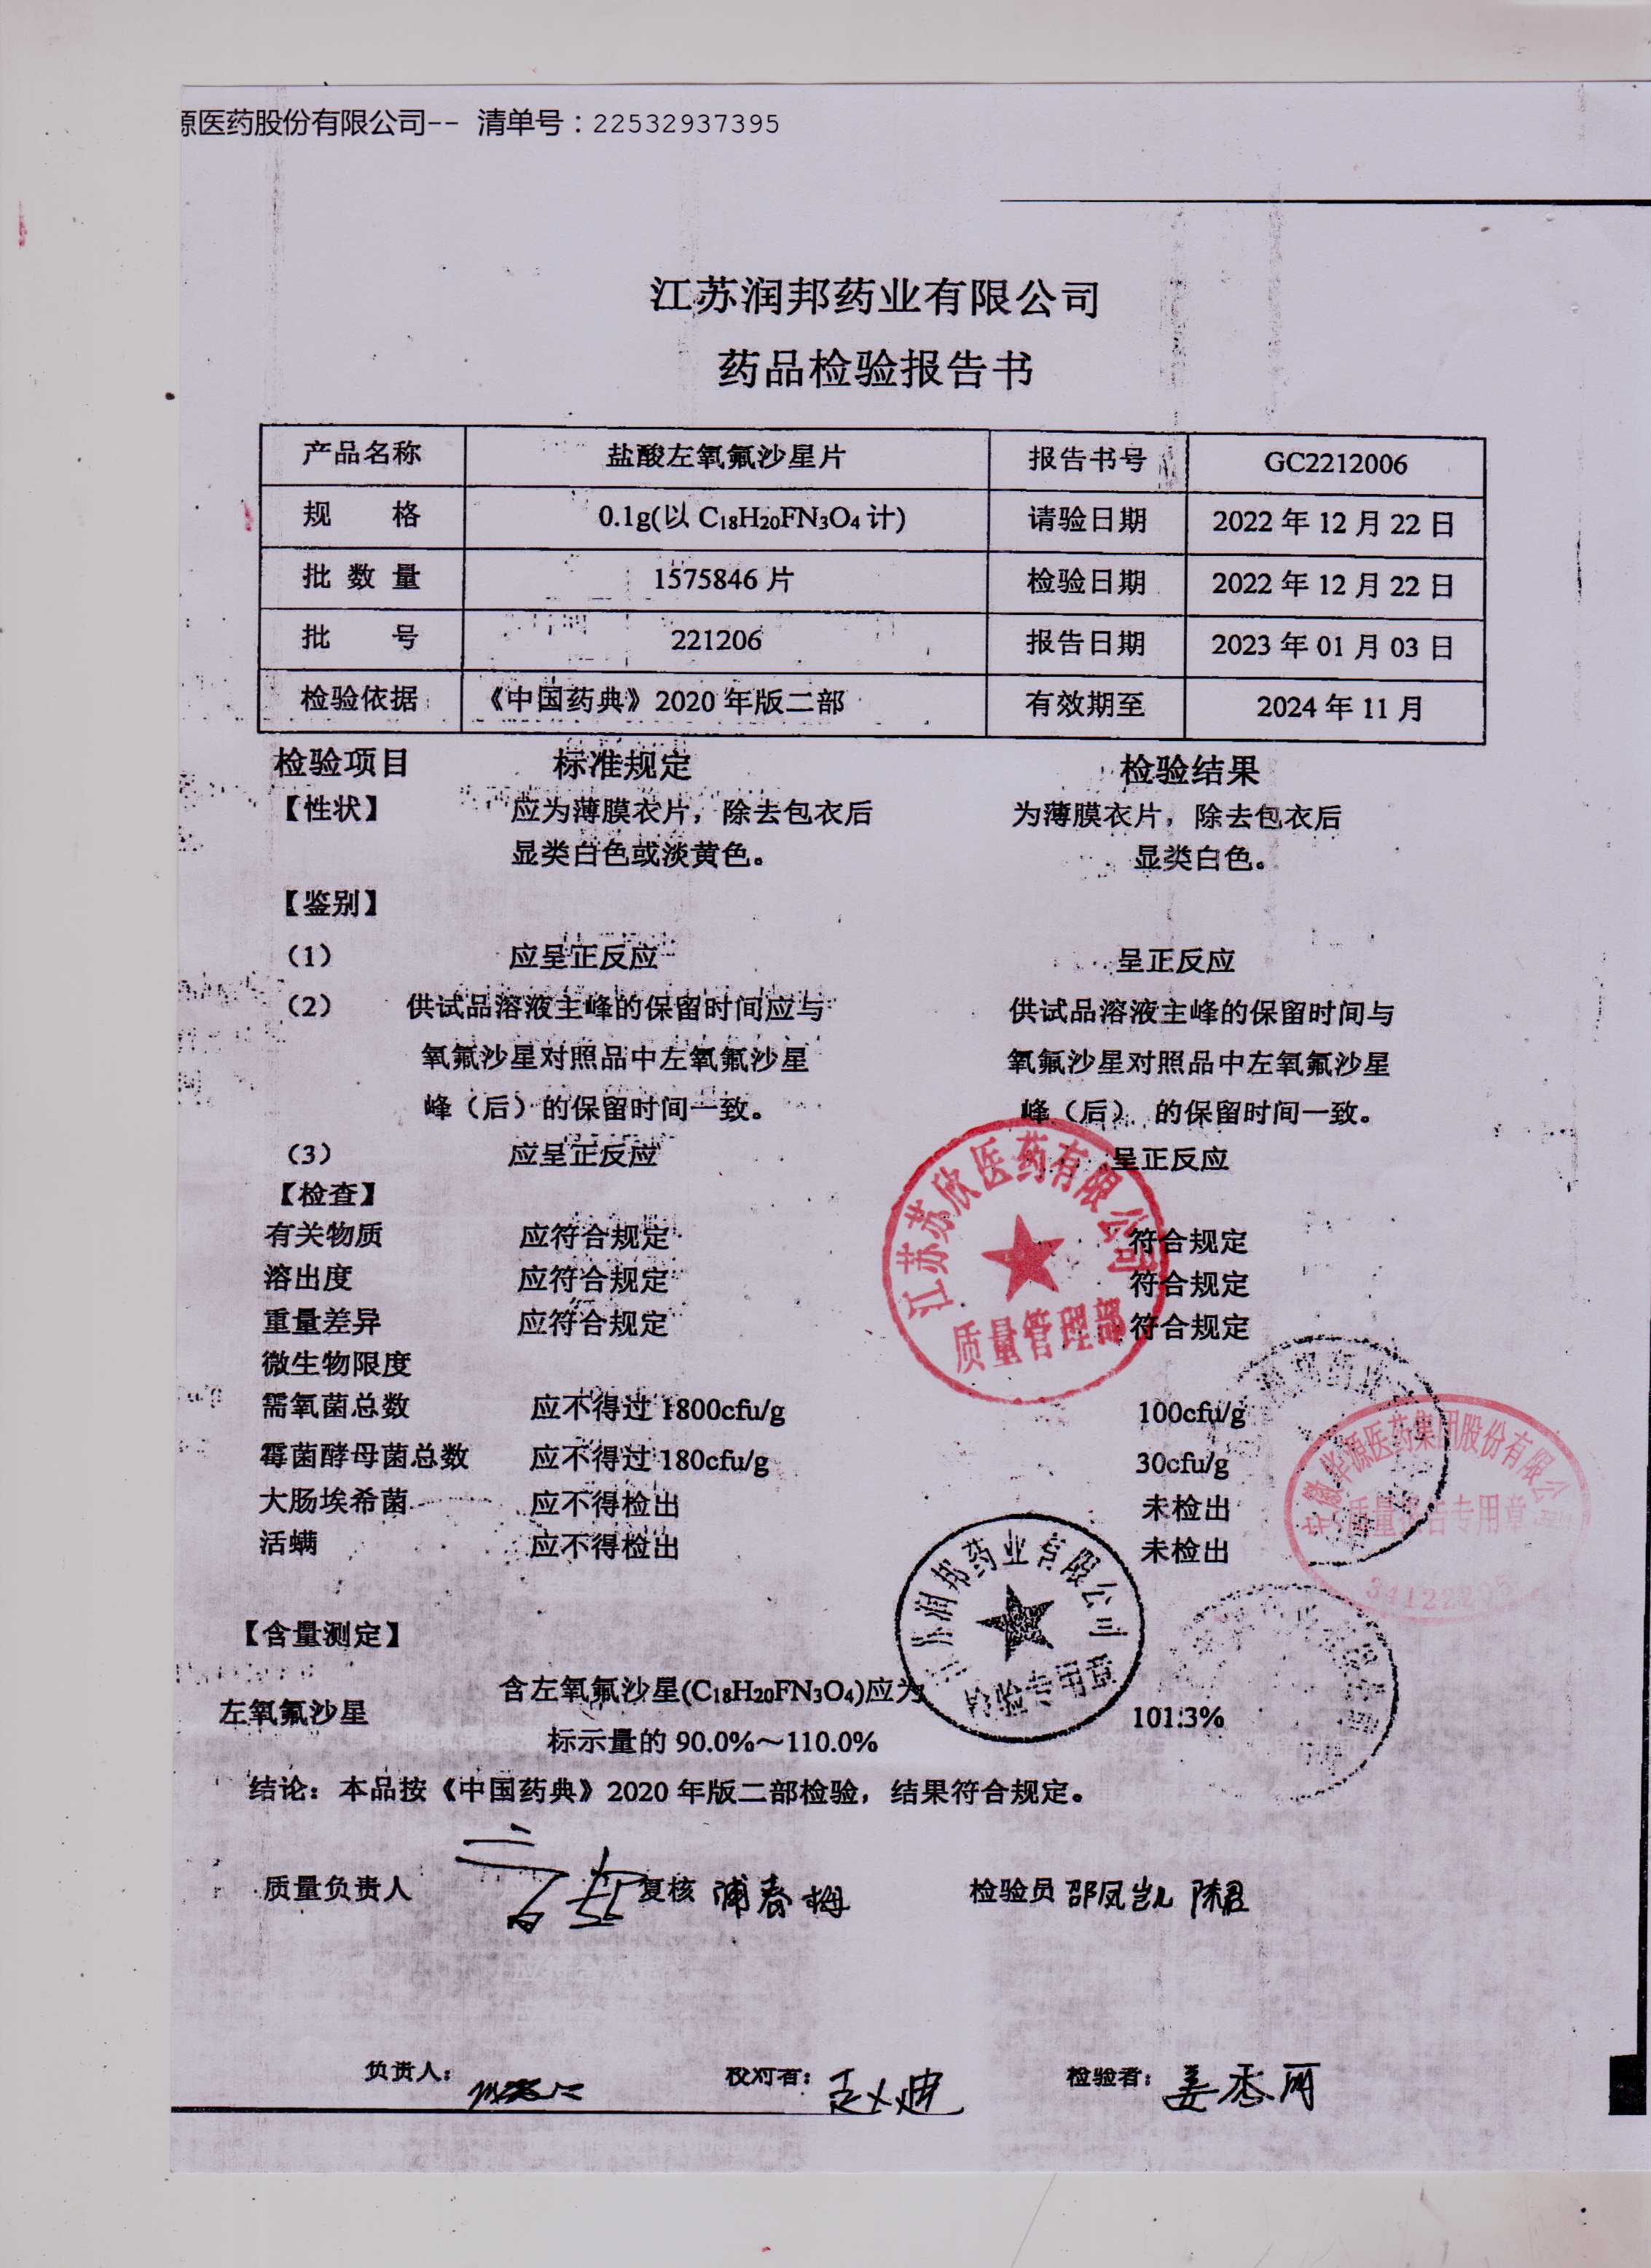 源医药股份有限公司-- 清单号：22532937395
江苏润邦药业有限公司
药品检验报告书
产品名称 盐酸左氧氟沙星片 报告书号 GC2212006
规 格 0.1g(以 C18H20FN3O4 计) 请验日期 2022 年 12 月 22 日
批 数 量 1575846 片 检验日期 2022 年 12 月 22 日
批 号 221206 报告日期 2023 年 01 月 03 日
检验依据 《中国药典》2020 年版二部 有效期至 2024 年 11 月
检验项目 标准规定 检验结果
【性状】 应为薄膜衣片，除去包衣后 为薄膜衣片，除去包衣后
显类白色或淡黄色。 显类白色。
【鉴别】
（1） 应呈正反应 呈正反应
（2） 供试品溶液主峰的保留时间应与 供试品溶液主峰的保留时间与
氧氟沙星对照品中左氧氟沙星 氧氟沙星对照品中左氧氟沙星
峰（后）的保留时间一致。 峰（后）的保留时间一致。
（3） 应呈正反应 呈正反应
【检查】
有关物质 应符合规定 符合规定
溶出度 应符合规定 符合规定
重量差异 应符合规定 符合规定
微生物限度
需氧菌总数 应不得过 1800cfu/g 100cfu/g
霉菌酵母菌总数 应不得过 180cfu/g 30cfu/g
大肠埃希菌 应不得检出 未检出
活螨 应不得检出 未检出
江苏苏欣医药有限公司
质量管理部
华源医药集团股份有限公
质量报告专用章
江苏润邦药业有限公司
检验专用章
【含量测定】
含左氧氟沙星(C18H20FN3O4)应为
左氧氟沙星 101.3%
标示量的 90.0%～110.0%
结论：本品按《中国药典》2020 年版二部检验，结果符合规定。
质量负责人 复核 浦春梅 检验员 邵凤凯 陈君
负责人： 校对者： 检验者：姜香丽